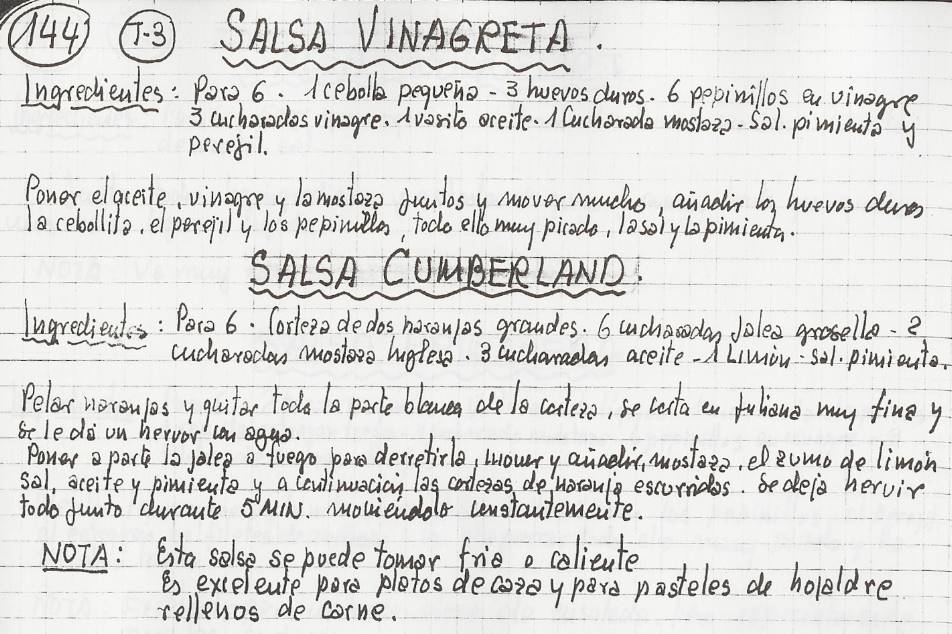 144 T-3 SALSA VINAGRETA.
Ingredientes: Para 6. 1 cebolla pequeña - 3 huevos duros. 6 pepinillos en vinagre
3 cucharadas vinagre. 1 vasito aceite. 1 Cucharada mostaza - Sal. pimienta y
perejil.
Poner el aceite, vinagre y la mostaza juntos y mover mucho, añadir los huevos duros
la cebollita, el perejil y los pepinillos, todo ello muy picado, la sal y la pimienta.
SALSA CUMBERLAND.
Ingredientes: Para 6. Corteza de dos naranjas grandes. 6 cucharadas Jalea grosella - 2
cucharadas mostaza Inglesa. 3 cucharadas aceite - 1 Limón - sal. pimienta.
Pelar naranjas y quitar toda la parte blanca de la corteza, se corta en juliana muy fina y
se le da un hervor con agua.
Poner a parte la jalea a fuego para derretirla, mover y añadir, mostaza, el zumo de limón
sal, aceite y pimienta y a continuación las cortezas de naranja escurridas. Se deja hervir
todo junto durante 5 MIN. moviéndolo constantemente.
NOTA: Esta salsa se puede tomar fria o caliente
Es excelente para platos de caza y para pasteles de hojaldre
rellenos de carne.